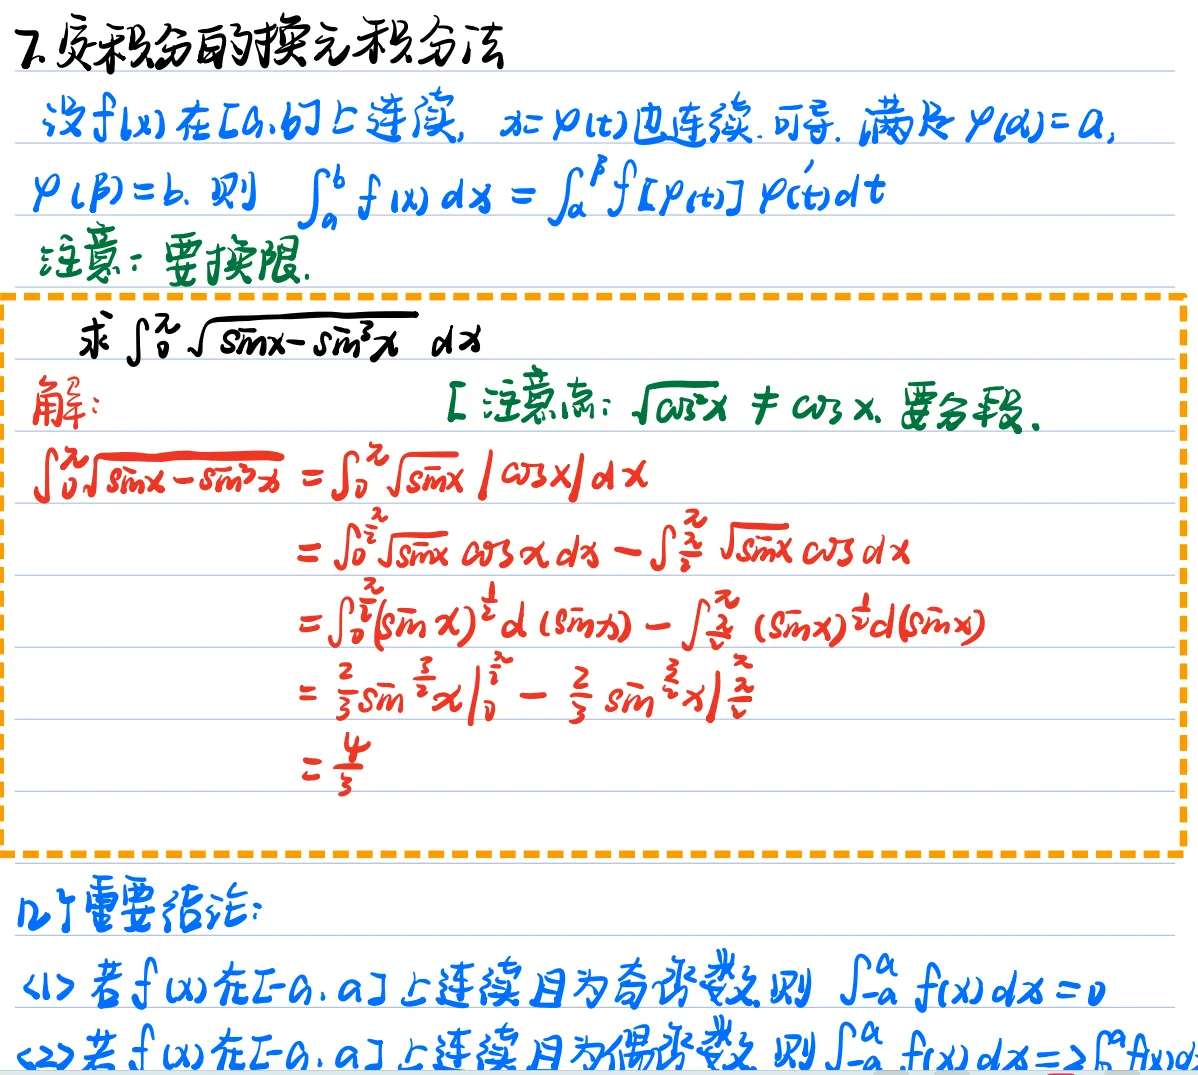 7.定积分的换元积分法
设f(x)在[a,b]上连续, x=φ(t)也连续.可导.满足φ(α)=a,
φ(β)=b. 则 ∫_a^b f(x)dx = ∫_α^β f[φ(t)]φ'(t)dt
注意: 要换限.
求 ∫_0^π √(sinx-sin³x) dx
解: [注意点: √(cos²x) ≠ cosx. 要分段.
∫_0^π √(sinx-sin³x) = ∫_0^π √(sinx) |cosx|dx
= ∫_0^(π/2) √(sinx) cosxdx - ∫_(π/2)^π √(sinx) cosdx
= ∫_0^(π/2) (sinx)^(1/2) d(sinx) - ∫_(π/2)^π (sinx)^(1/2) d(sinx)
= 2/3 sin^(3/2) x |_0^(π/2) - 2/3 sin^(3/2) x |_(π/2)^π
= 4/3
几个重要结论:
<1> 若f(x)在[-a,a]上连续且为奇函数.则 ∫_(-a)^a f(x)dx=0
<2>若f(x)在[-a,a]上连续且为偶函数.则∫_(-a)^a f(x)dx=2∫_0^a f(x)d